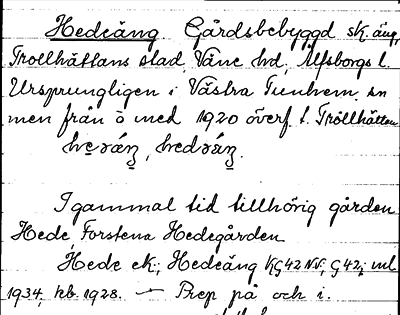 Hedeäng. Gårdsbebyggd sk. äng,
Trollhättans stad, Väne hd, Älfsborgs l.
Ursprungligen i Västra Tunhem sn
men från o med 1920 överf. t. Trollhättan
I gammal tid tillhörig gården
Hede, Forstena Hedegården
Hede ek; Hedeäng KG42NV; G42; ml
1934, kb. 1928. — Prep på och i.